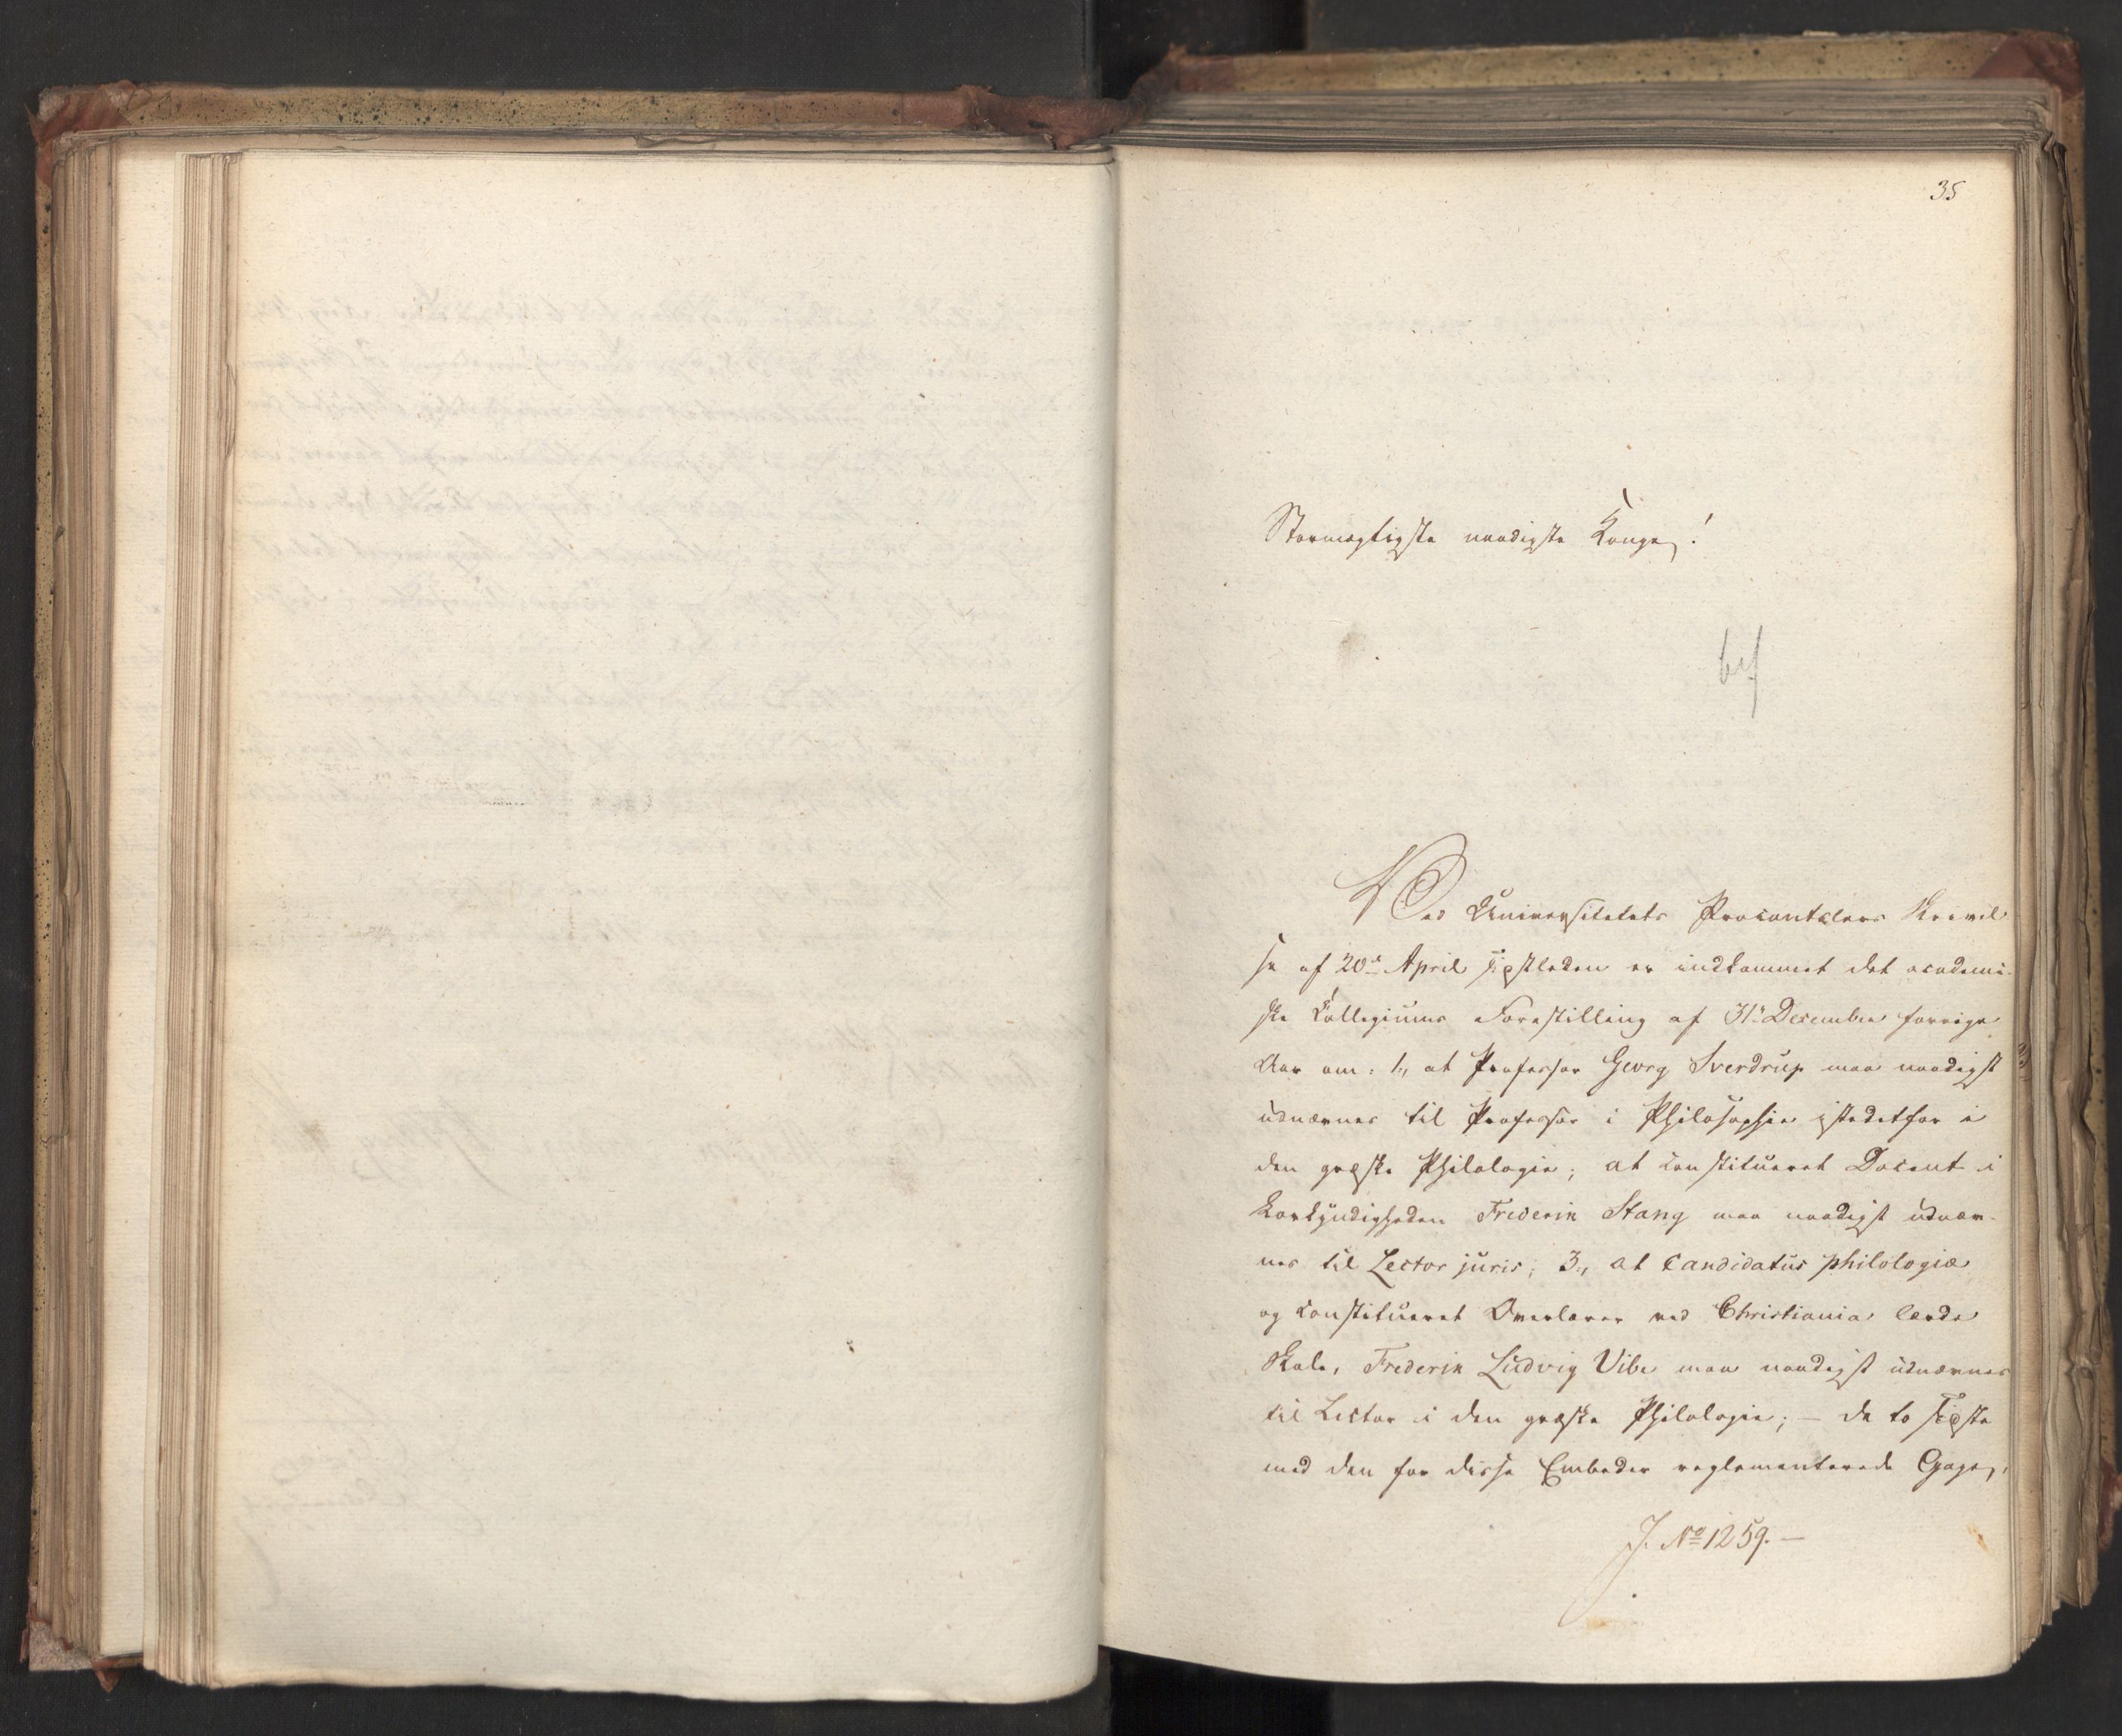 35
Stormægtigste naadigste Konge!
bef
Ved Universitetets Procantslers Skrivel
se af 20de April sidstleden er indkommet det academi-
ske Collegiums Forestilling af 31te December forrige
Aar om: 1, at Professor Georg Sverdrup maa naadigst
udnævnes til Professor i Philosophie istedetfor i
den græske Philologie; at constitueret Docent i
Lovkyndigheden Frederik Stang maa naadigst udnæv-
nes til Lector juris; 3, at Candidatus philologiæ
og constitueret Overlærer ved Christiania lærde
Skole, Frederik Ludvig Vibe maa naadigst udnævnes
til Lector i den græske Philologie; – de to sidste
med den for disse Embeder reglementerede Gage,
J. No 1259. –